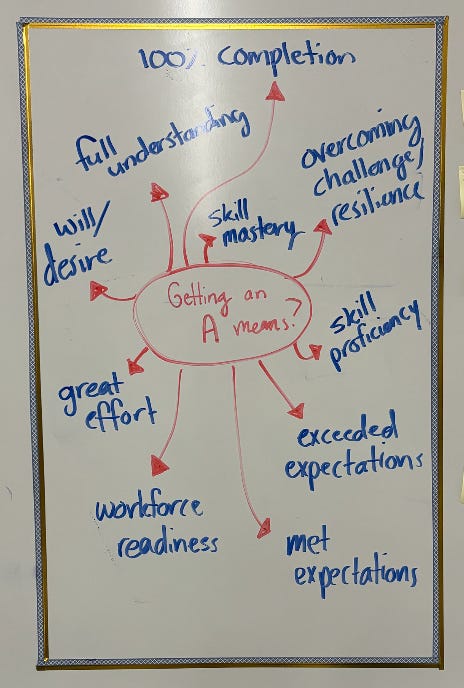 100% completion
full
understanding
overcoming
challenge/
resilience
skill
mastery
will/
desire
Getting an
A means?
skill
proficiency
great
effort
exceeded
expectations
workforce
readiness
met
expectations